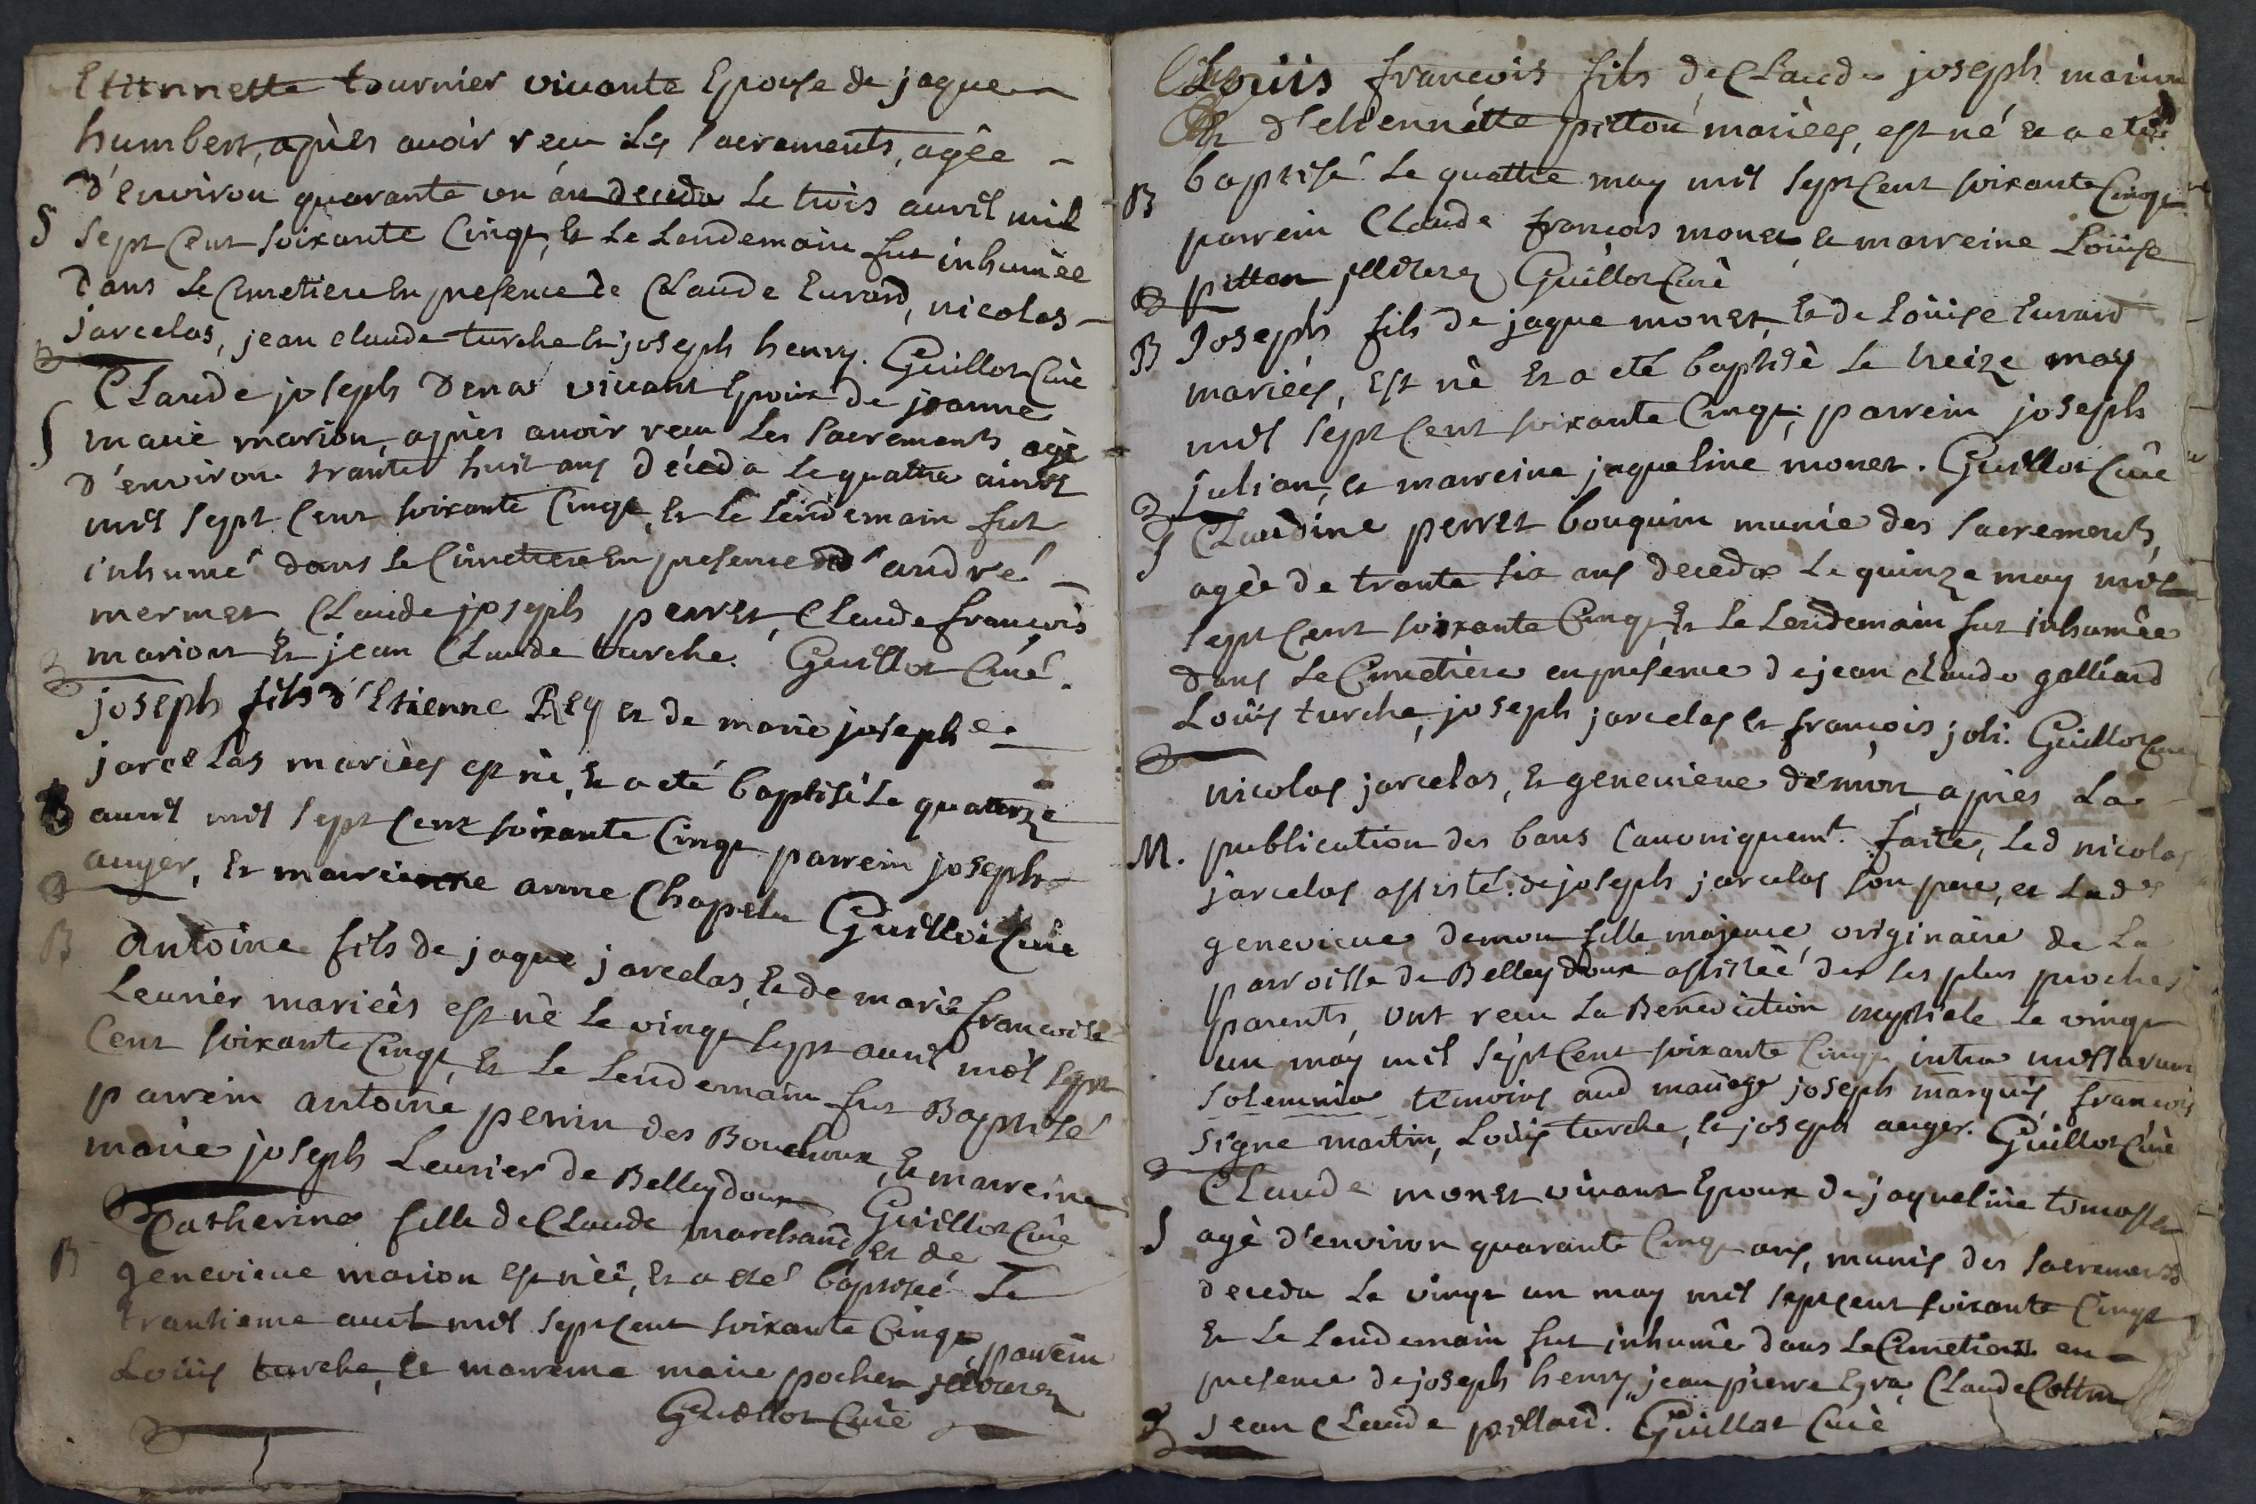 Etiennette tournier vivante Epouse de jaque
humbert, après avoir reçu Les sacrements, agêe
d'environ quarante un an deceda Le trois avril mil
S sept Cent soixante Cinqt, Et Le Lendemain fut inhumêe
dans Le Cimetiere En presence de Claude Evrard, nicolas
jarcelas, jean claude turche Et joseph henry. Guillot Curè
Claude joseph vivant Epoux de jeanne
S marie marion, après avoir reçu Les sacrements agè
d'environ trante huit ans dèceda Le quatre avril
mil sept Cent soixante Cinqt, Et Le Lendemain fut
inhumé dans Le Cimetiere En presence d'andré
mermet, Claude joseph perret, Claude françois
marion Et jean Claude turche. Guillot Curé.
joseph fils d'Etienne Rey et de marie josephe
jarcelas mariès est nè, Et a eté baptisè Le quatorze
B avril mil sept Cent soixante Cinqt parrein joseph
auger, Et marreine anne Chapelu Guillot Curè
B Antoine fils de jaque jarcelas, Et de marie françoise
Levrier mariès est nè Le vingt sept avril mil sept
Cent soixante Cinqt, Et Le Lendemain fut Baptisé
parrein antoine perrin des Bouchoux, Et marreine
marie joseph Levrier de Belleydoux Guillot Curè
Catherine fille de Claude marchand, et de
B genevieve marion est nèe, Et a eté baptisèe Le
trantieme avril mil sept Cent soixante Cinqt, parrein
Loüis turche, Et marreine marie pochet illiterez
Guillot Curè
Loüis françois fils de Claude joseph marion
Et d'etiennétte pitton mariès, est né Et a eté
B baptisé Le quattre may mil sept Cent soixante Cinqt
parrein Claude françois monet, et marreine Loüise
pitton illiterez Guillot Curè
B Joseph fils de jaque monet, Et de Loüise Evrard
mariés, Est nè Et a eté baptisè Le treize may
mil sept Cent soixante Cinqt; parrein joseph
julian, et marreine jaqueline monet. Guillot Curè
S Claudine perret bouquin munie des sacrements,
agèe de trante six ans deceda Le quinze may mil
sept Cent soixante Cinqt, Et Le Lendemain fut inhumêe
dans Le Cimetière en présence de jean claude galliard
Loüis turche, joseph jarcelas et françois joli. Guillot Curè
nicolas jarcelas, Et genevieve démon, après La
M. publication des bans Canoniquemt. faite, Led nicolas
jarcelas assisté de joseph jarcelas son pere, et Lade
genevieve demon fille majeure originaire de La
parroisse de Belleydoux assistée des ses plus proches
parents, ont recu La Benediction nuptiale Le vingt
un may mil sept Cent soixante Cinqt intra missarum
solemnia temoins aud mariage joseph marquis, françois
signe martin, Loüis turche, et joseph auger. Guillot Curè
Claude monet vivant Epoux de jaqueline tomasset
S agè d'environ quarante Cinqt ans, munis des sacrements
deceda Le vingt un may mil sept cent soixante Cinqt
Et Le Lendemain fut inhumê dans Le Cimetiere en
presence de joseph henry, jean pierre Claude Cottin
jean Claude pillard. Guillot Curè